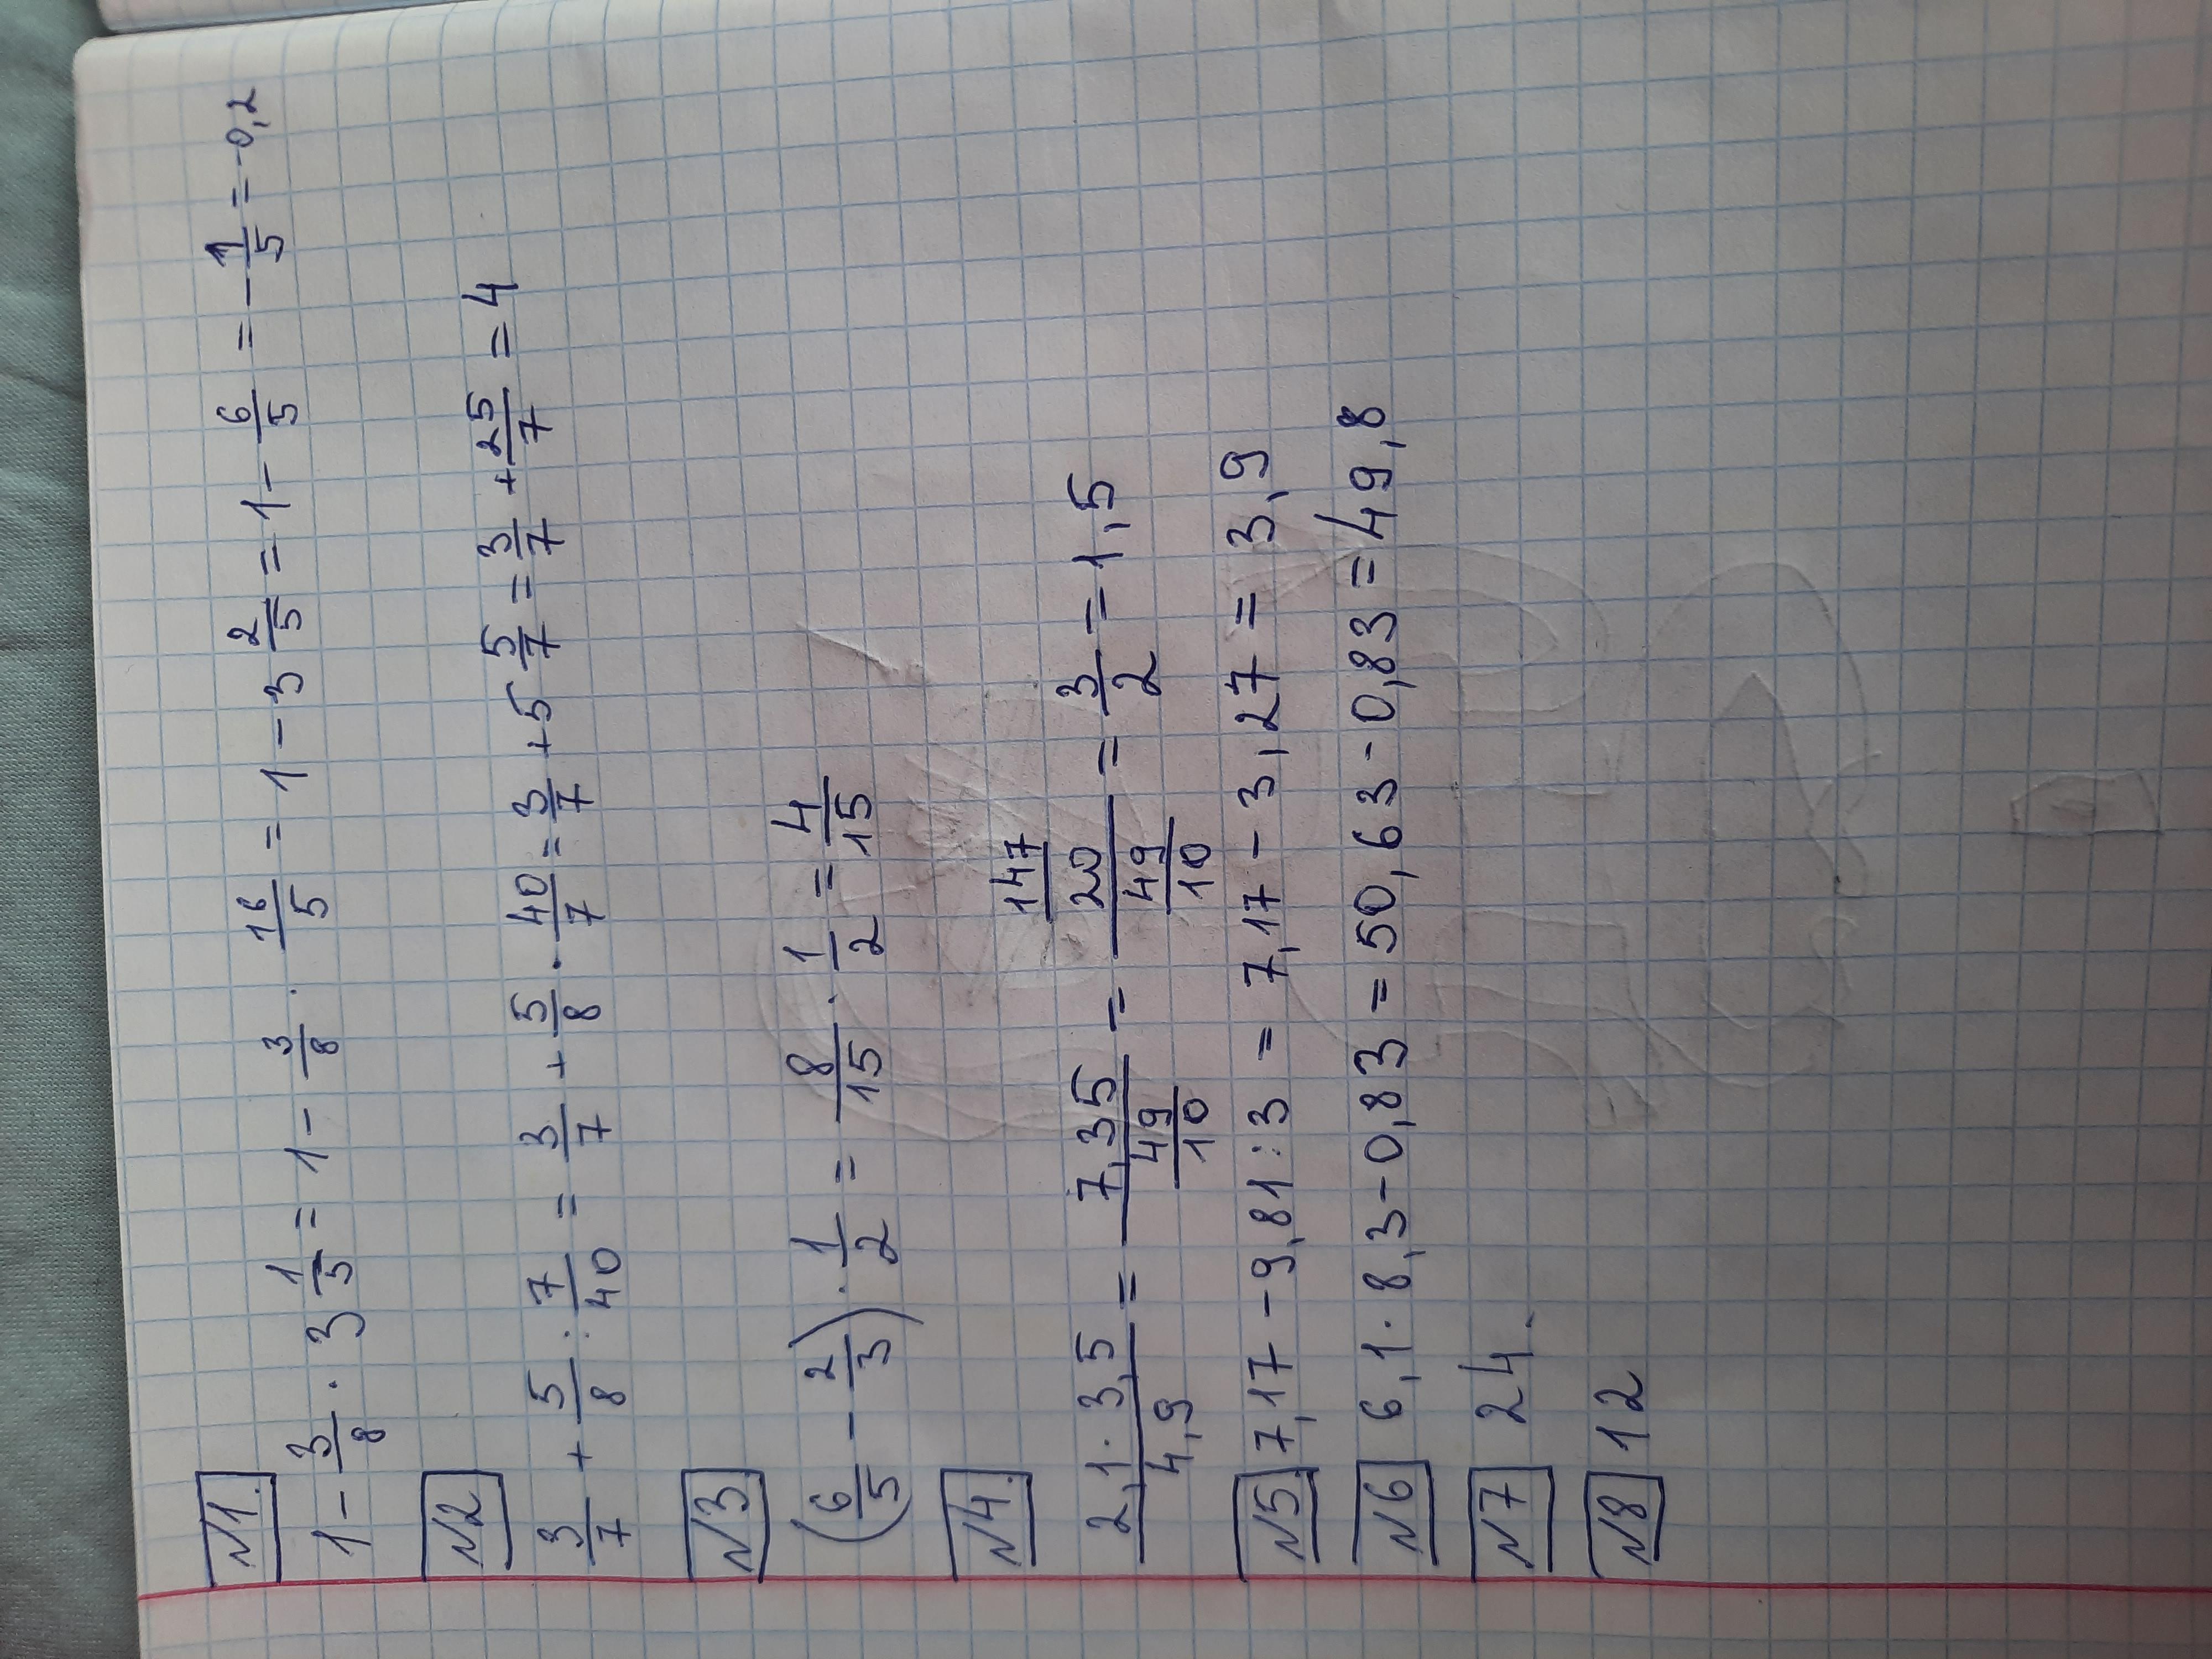 №1.
1 - 3/8 · 3 1/3 = 1 - 3/8 · 16/5 = 1 - 3 2/5 = 1 - 6/5 = - 1/5 = -0,2
№2
3/7 + 5/8 : 7/40 = 3/7 + 5/8 · 40/7 = 3/7 + 5 5/7 = 3/7 + 25/7 = 4
№3
(6/5 - 2/3) · 1/2 = 8/15 · 1/2 = 4/15
№4.
2,1 · 3,5 / 4,9 = 7,35 / 49/10 = 147/20 / 49/10 = 3/2 = 1,5
№5 7,17 - 9,81 : 3 = 7,17 - 3,27 = 3,9
№6 6,1 · 8,3 - 0,83 = 50,63 - 0,83 = 49,8
№7 24.
№8 12